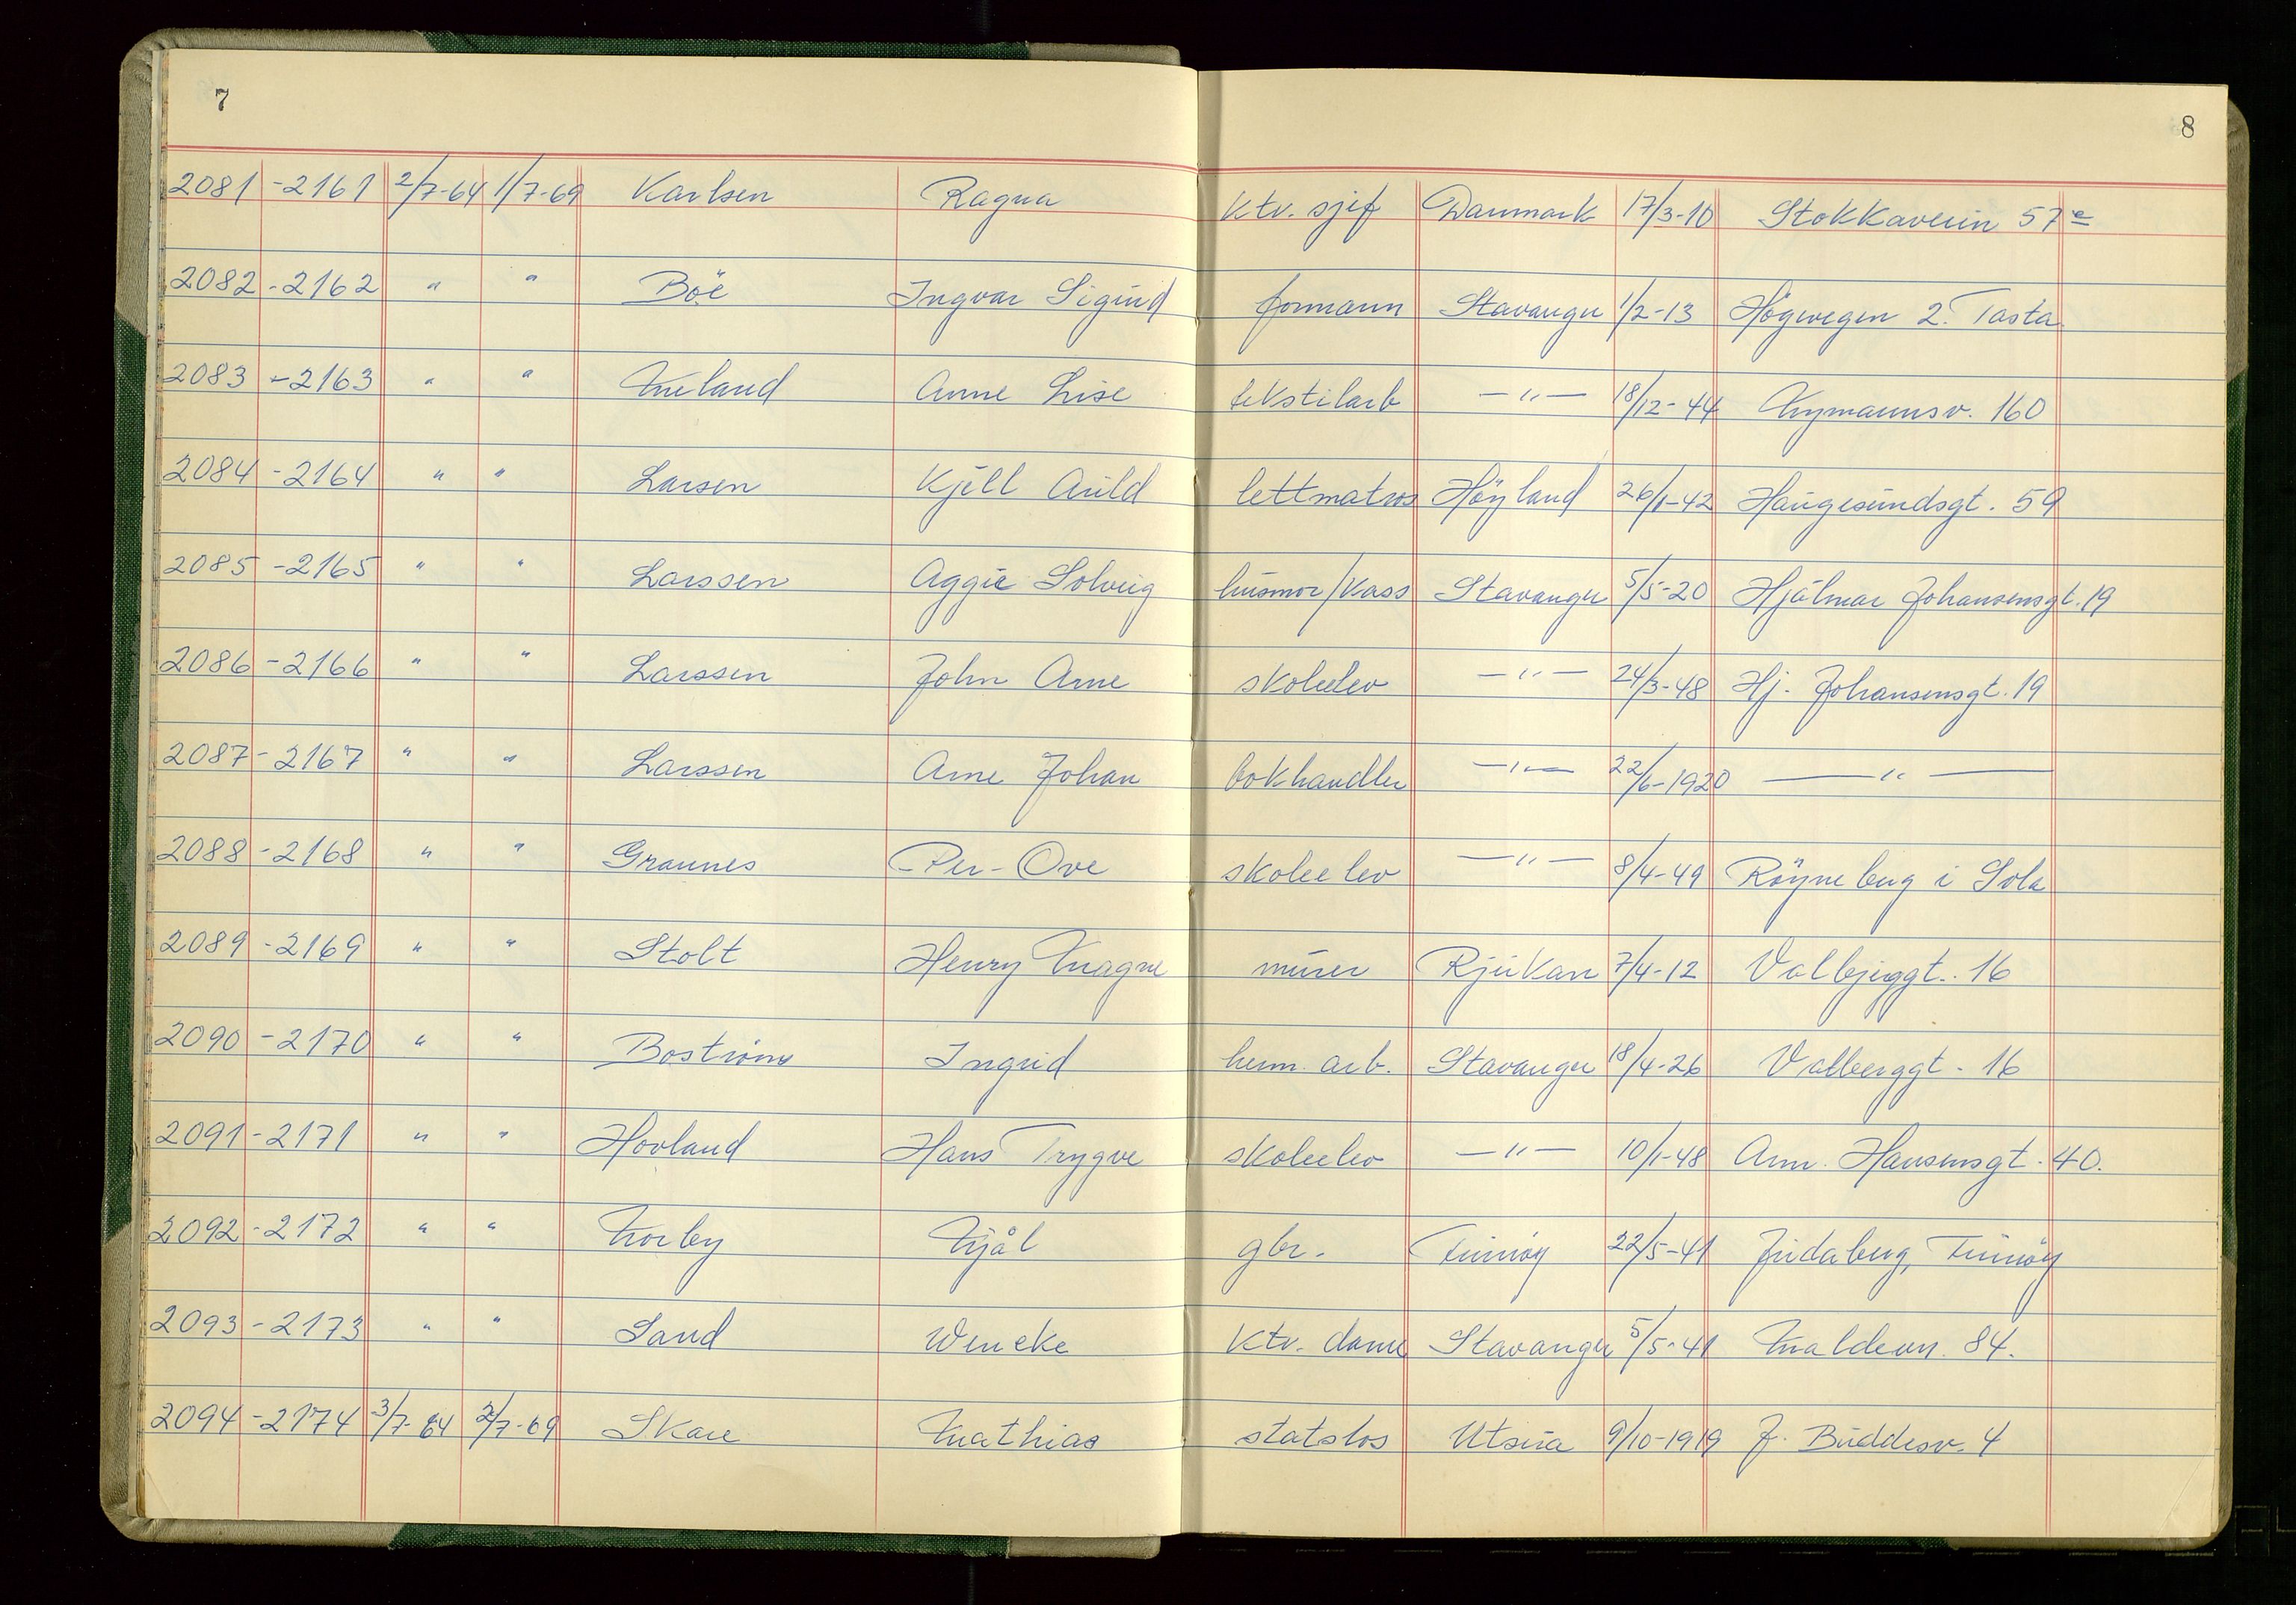 7
8
2081 -2161 2/7-64 1/7-69 Karlsen Ragna ktr. sjef Danmark 17/3-10 Stokkaveien 57 e
2082 -2162 " " Böe Ingvar Sigurd formann Stavanger 1/2-13 Högevegen 2. Tasta.
2083 -2163 " " Meland Anne Lise tekstilarb —"— 18/12-44 Nymannsv. 160
2084 -2164 " " Larsen Kjell Arild lettmatros Höyland 26/1-42 Haugesundsgt. 59
2085 -2165 " " Larssen Aggie Solveig husmor/kass Stavanger 5/5-20 Hjalmar Johansensgt. 19
2086 -2166 " " Larssen John Arne skoleelev —"— 24/3-48 Hj. Johansensgt. 19
2087 -2167 " " Larssen Arne Johan bokhandler —"— 22/6-1920 —"—
2088 -2168 " " Grannes Per-Ove skoleelev —"— 8/4-49 Röyneberg i Sola
2089 -2169 " " Stolt Henry Magne murer Rjukan 7/4-12 Valbjerggt. 16
2090 -2170 " " Boström Ingrid herm. arb. Stavanger 18/4-26 Valberggt. 16
2091 -2171 " " Hovland Hans Trygve skoleelev —"— 10/1-48 Am. Hansensgt. 40.
2092 -2172 " " Norby Njål gbr. Finnöy 22/5-41 Judaberg, Finnöy
2093 -2173 " " Sand Wencke ktr. dame Stavanger 5/5-41 Maldevn. 84.
2094 -2174 3/7-64 2/7-69 Skare Mathias statslos Utsira 9/10-1919 J. Buddesv. 4